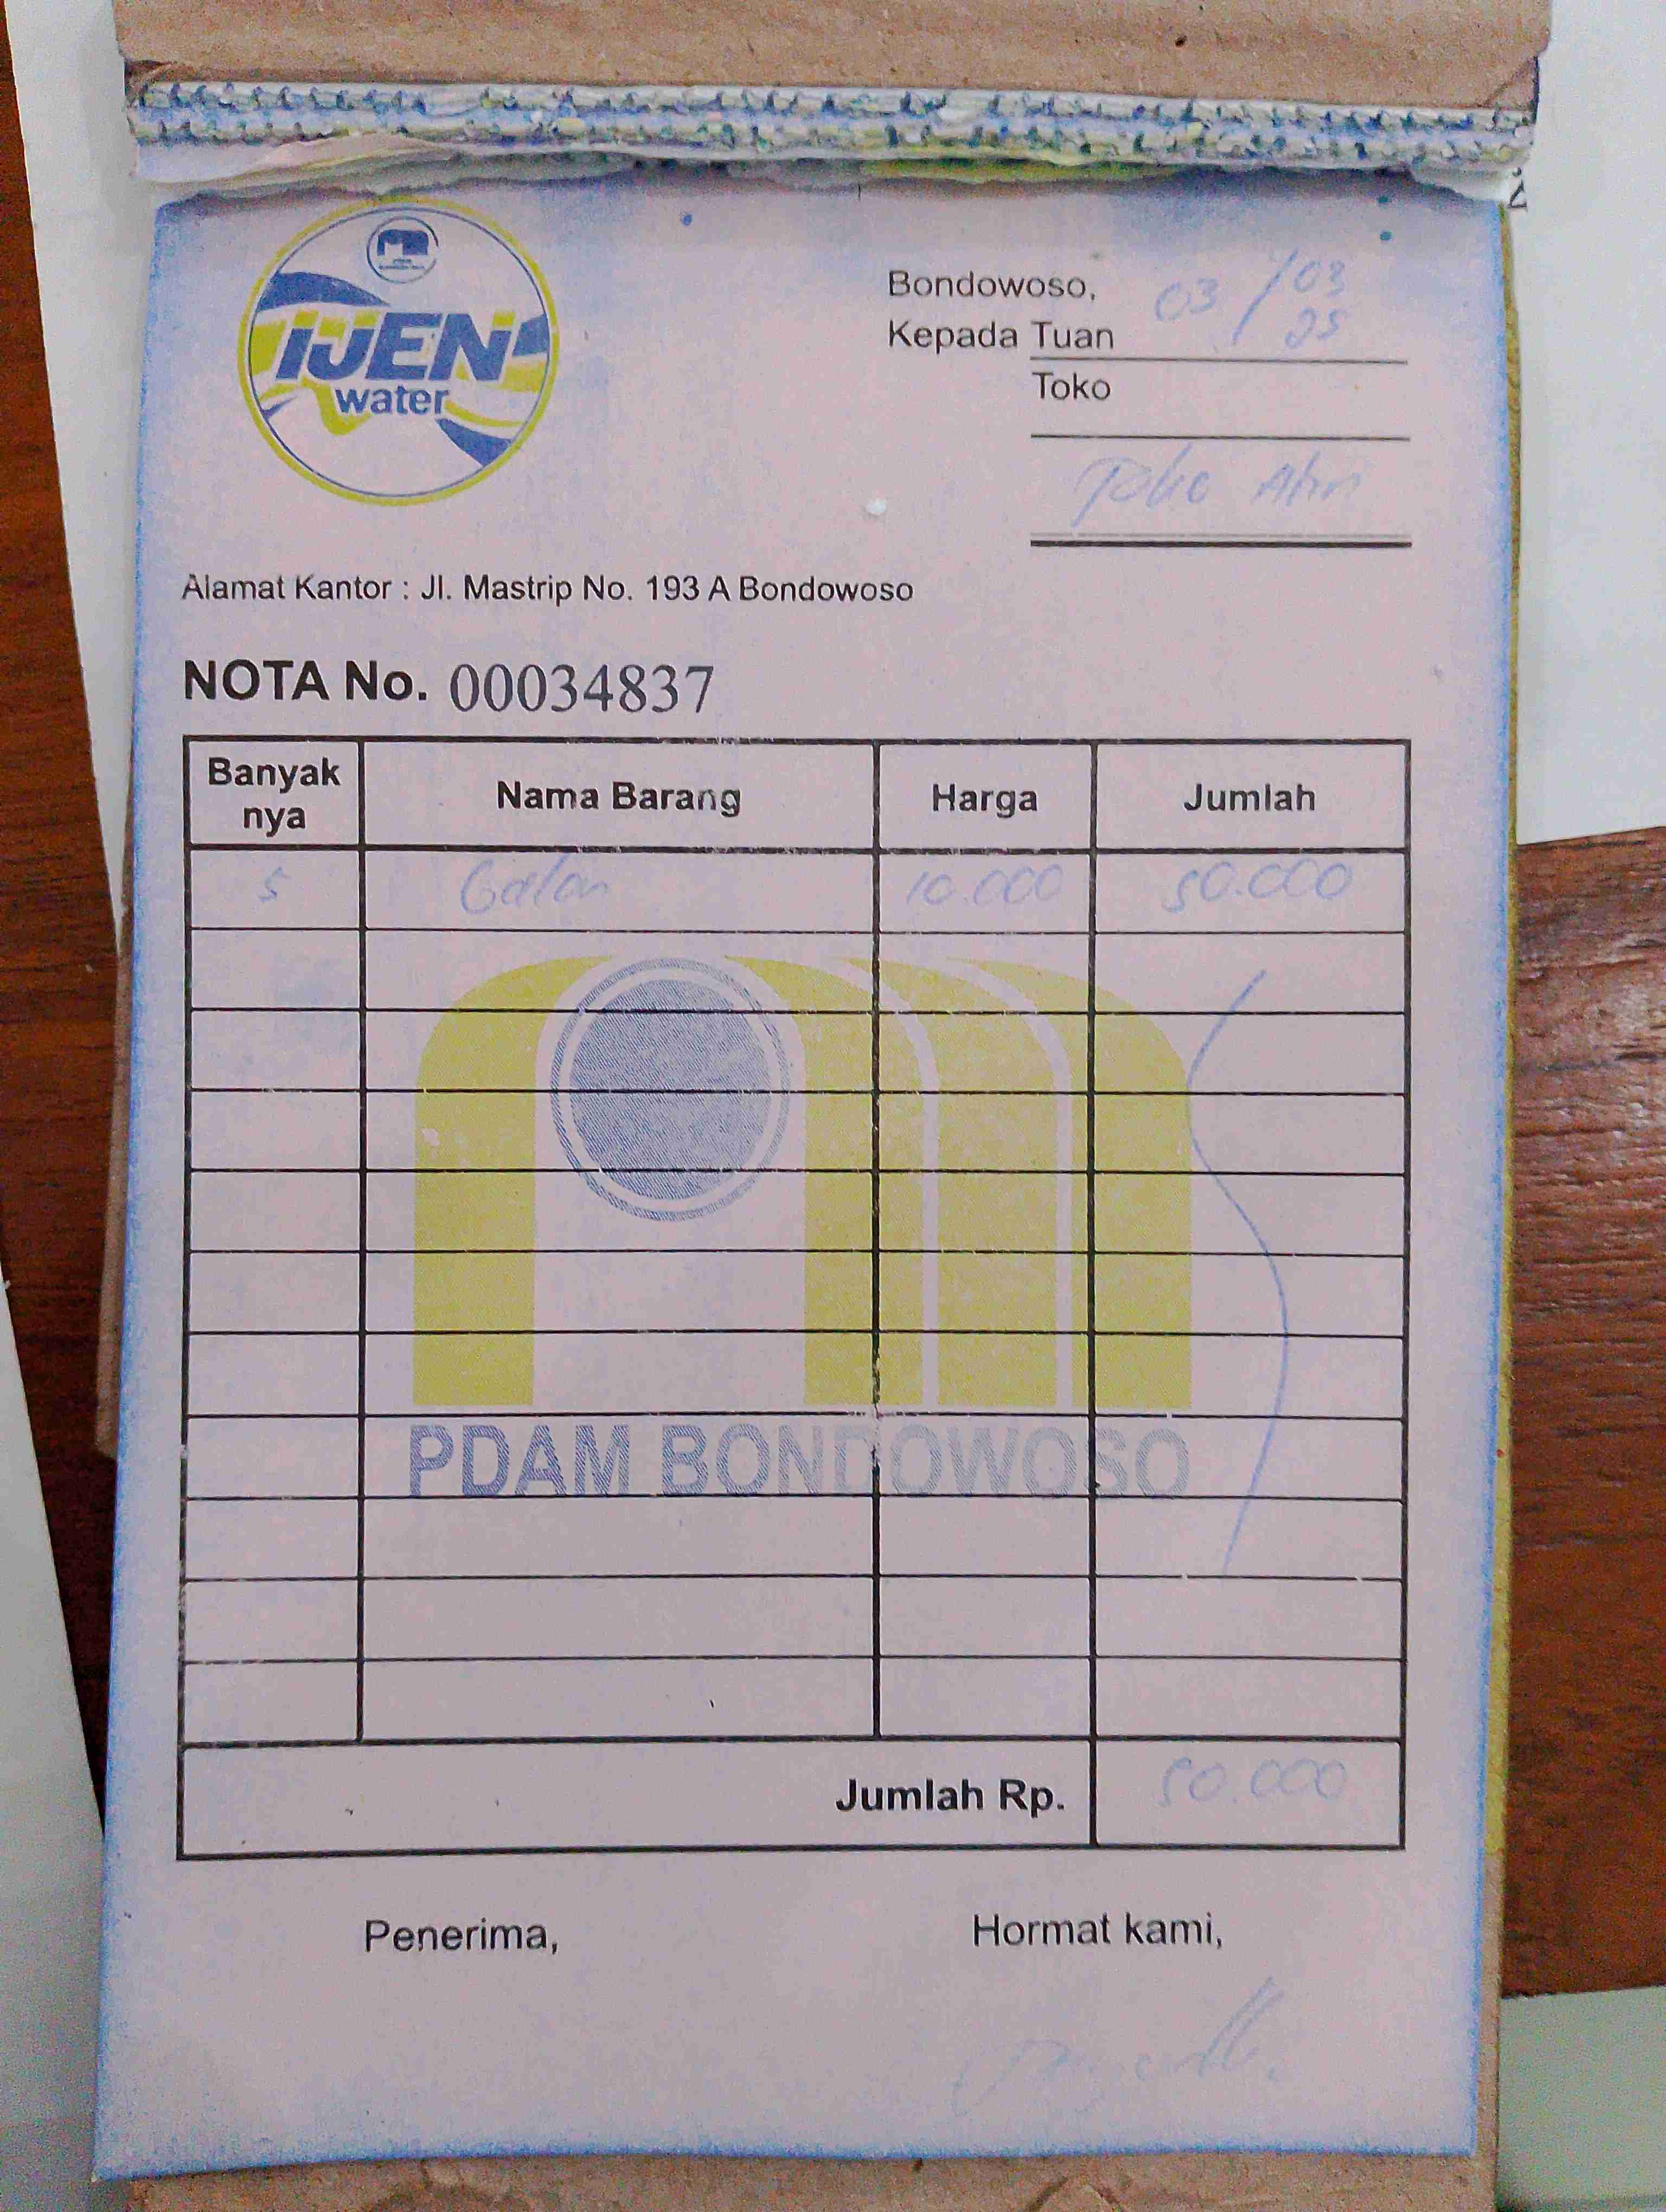 IJEN
water
Bondowoso, 03/03
25
Kepada Tuan
Toko
Toko
Alamat Kantor : Jl. Mastrip No. 193 A Bondowoso
NOTA No. 00034837
Banyak nya Nama Barang Harga Jumlah
5 Galon 10.000 50.000
PDAM BONDOWOSO
Jumlah Rp. 50.000
Penerima, Hormat kami,